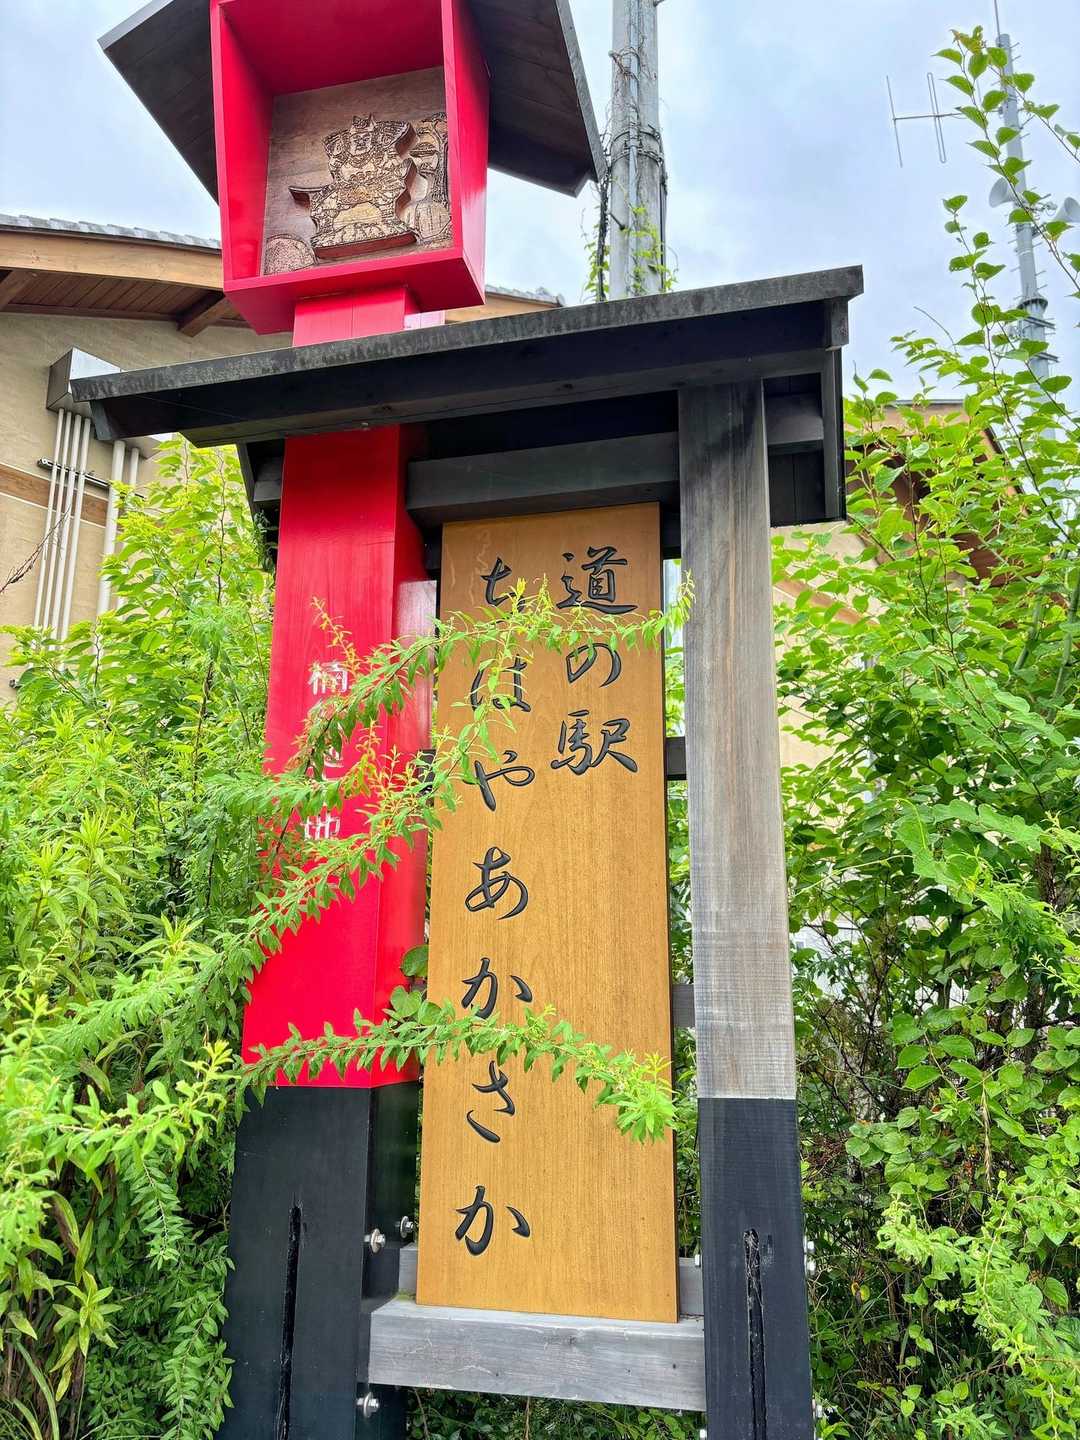 道の駅
ちはやあかさか
楠
地